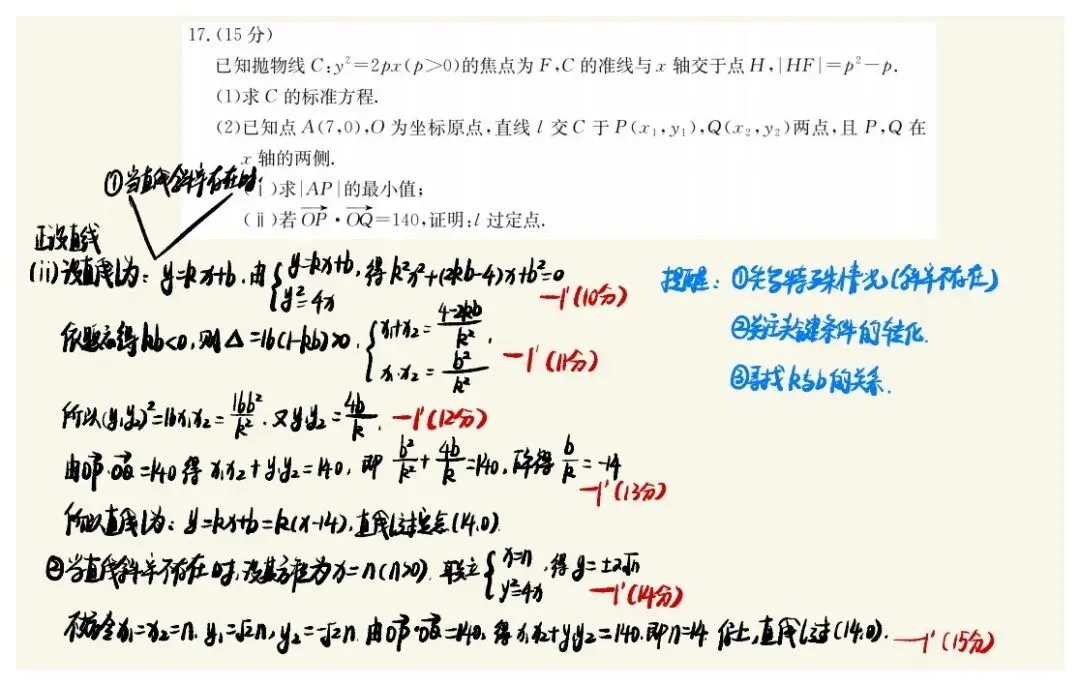 17.(15分)
已知抛物线C:y²=2px(p>0)的焦点为F,C的准线与x轴交于点H,|HF|=p²-p.
(1)求C的标准方程.
(2)已知点A(7,0),O为坐标原点,直线l交C于P(x₁,y₁),Q(x₂,y₂)两点,且P,Q在
x轴的两侧.
①当直线斜率存在时.
(ⅰ)求|AP|的最小值;
(ⅱ)若\overrightarrow{OP}·\overrightarrow{OQ}=140,证明:l过定点.
正设直线
(ii)设直线l为: y=kx+b. 由{y=kx+b, y²=4x 得k²x²+(2kb-4)x+b²=0 —1'(10分)
依题意得kb<0,则△=16(1-kb)>0. {x₁+x₂=\frac{4-2kb}{k²}, x₁·x₂=\frac{b²}{k²} —1'(11分)
所以(y₁y₂)²=16x₁x₂=\frac{16b²}{k²}. 又y₁y₂=\frac{4b}{k}. —1'(12分)
由\overrightarrow{OP}·\overrightarrow{OQ}=140得 x₁x₂+y₁y₂=140, 即\frac{b²}{k²}+\frac{4b}{k}=140,解得\frac{b}{k}=-14 —1'(13分)
所以直线l为: y=kx+b=k(x-14),直线l过定点(14,0)
②当直线斜率不存在时,设其方程为x=n(n>0) 联立{x=n y²=4x ,得y=±2√n —1'(14分)
不妨令x₁=x₂=n. y₁=√2n, y₂=-√2n 由\overrightarrow{OP}·\overrightarrow{OQ}=140, 得x₁x₂+y₁y₂=140.即n=14 综上,直线l过(14,0). —1'(15分)
提醒: ①关写特殊情况(斜率不存在)
②关注关键条件的转化.
③寻找k与b的关系.